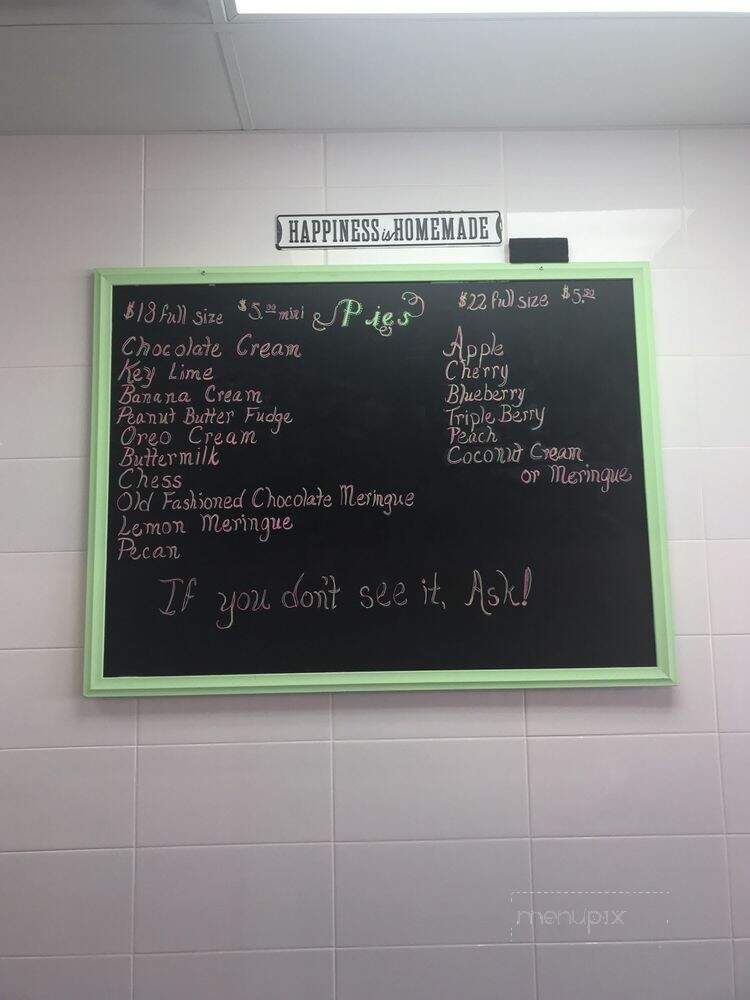 HAPPINESS is HOMEMADE
$18 full size $5.00 mini Pies
Chocolate Cream
Key Lime
Banana Cream
Peanut Butter Fudge
Oreo Cream
Buttermilk
Chess
Old Fashioned Chocolate Meringue
Lemon Meringue
Pecan
$22 full size $5.50
Apple
Cherry
Blueberry
Triple Berry
Peach
Coconut Cream
or Meringue
If you don't see it, Ask!
menupix